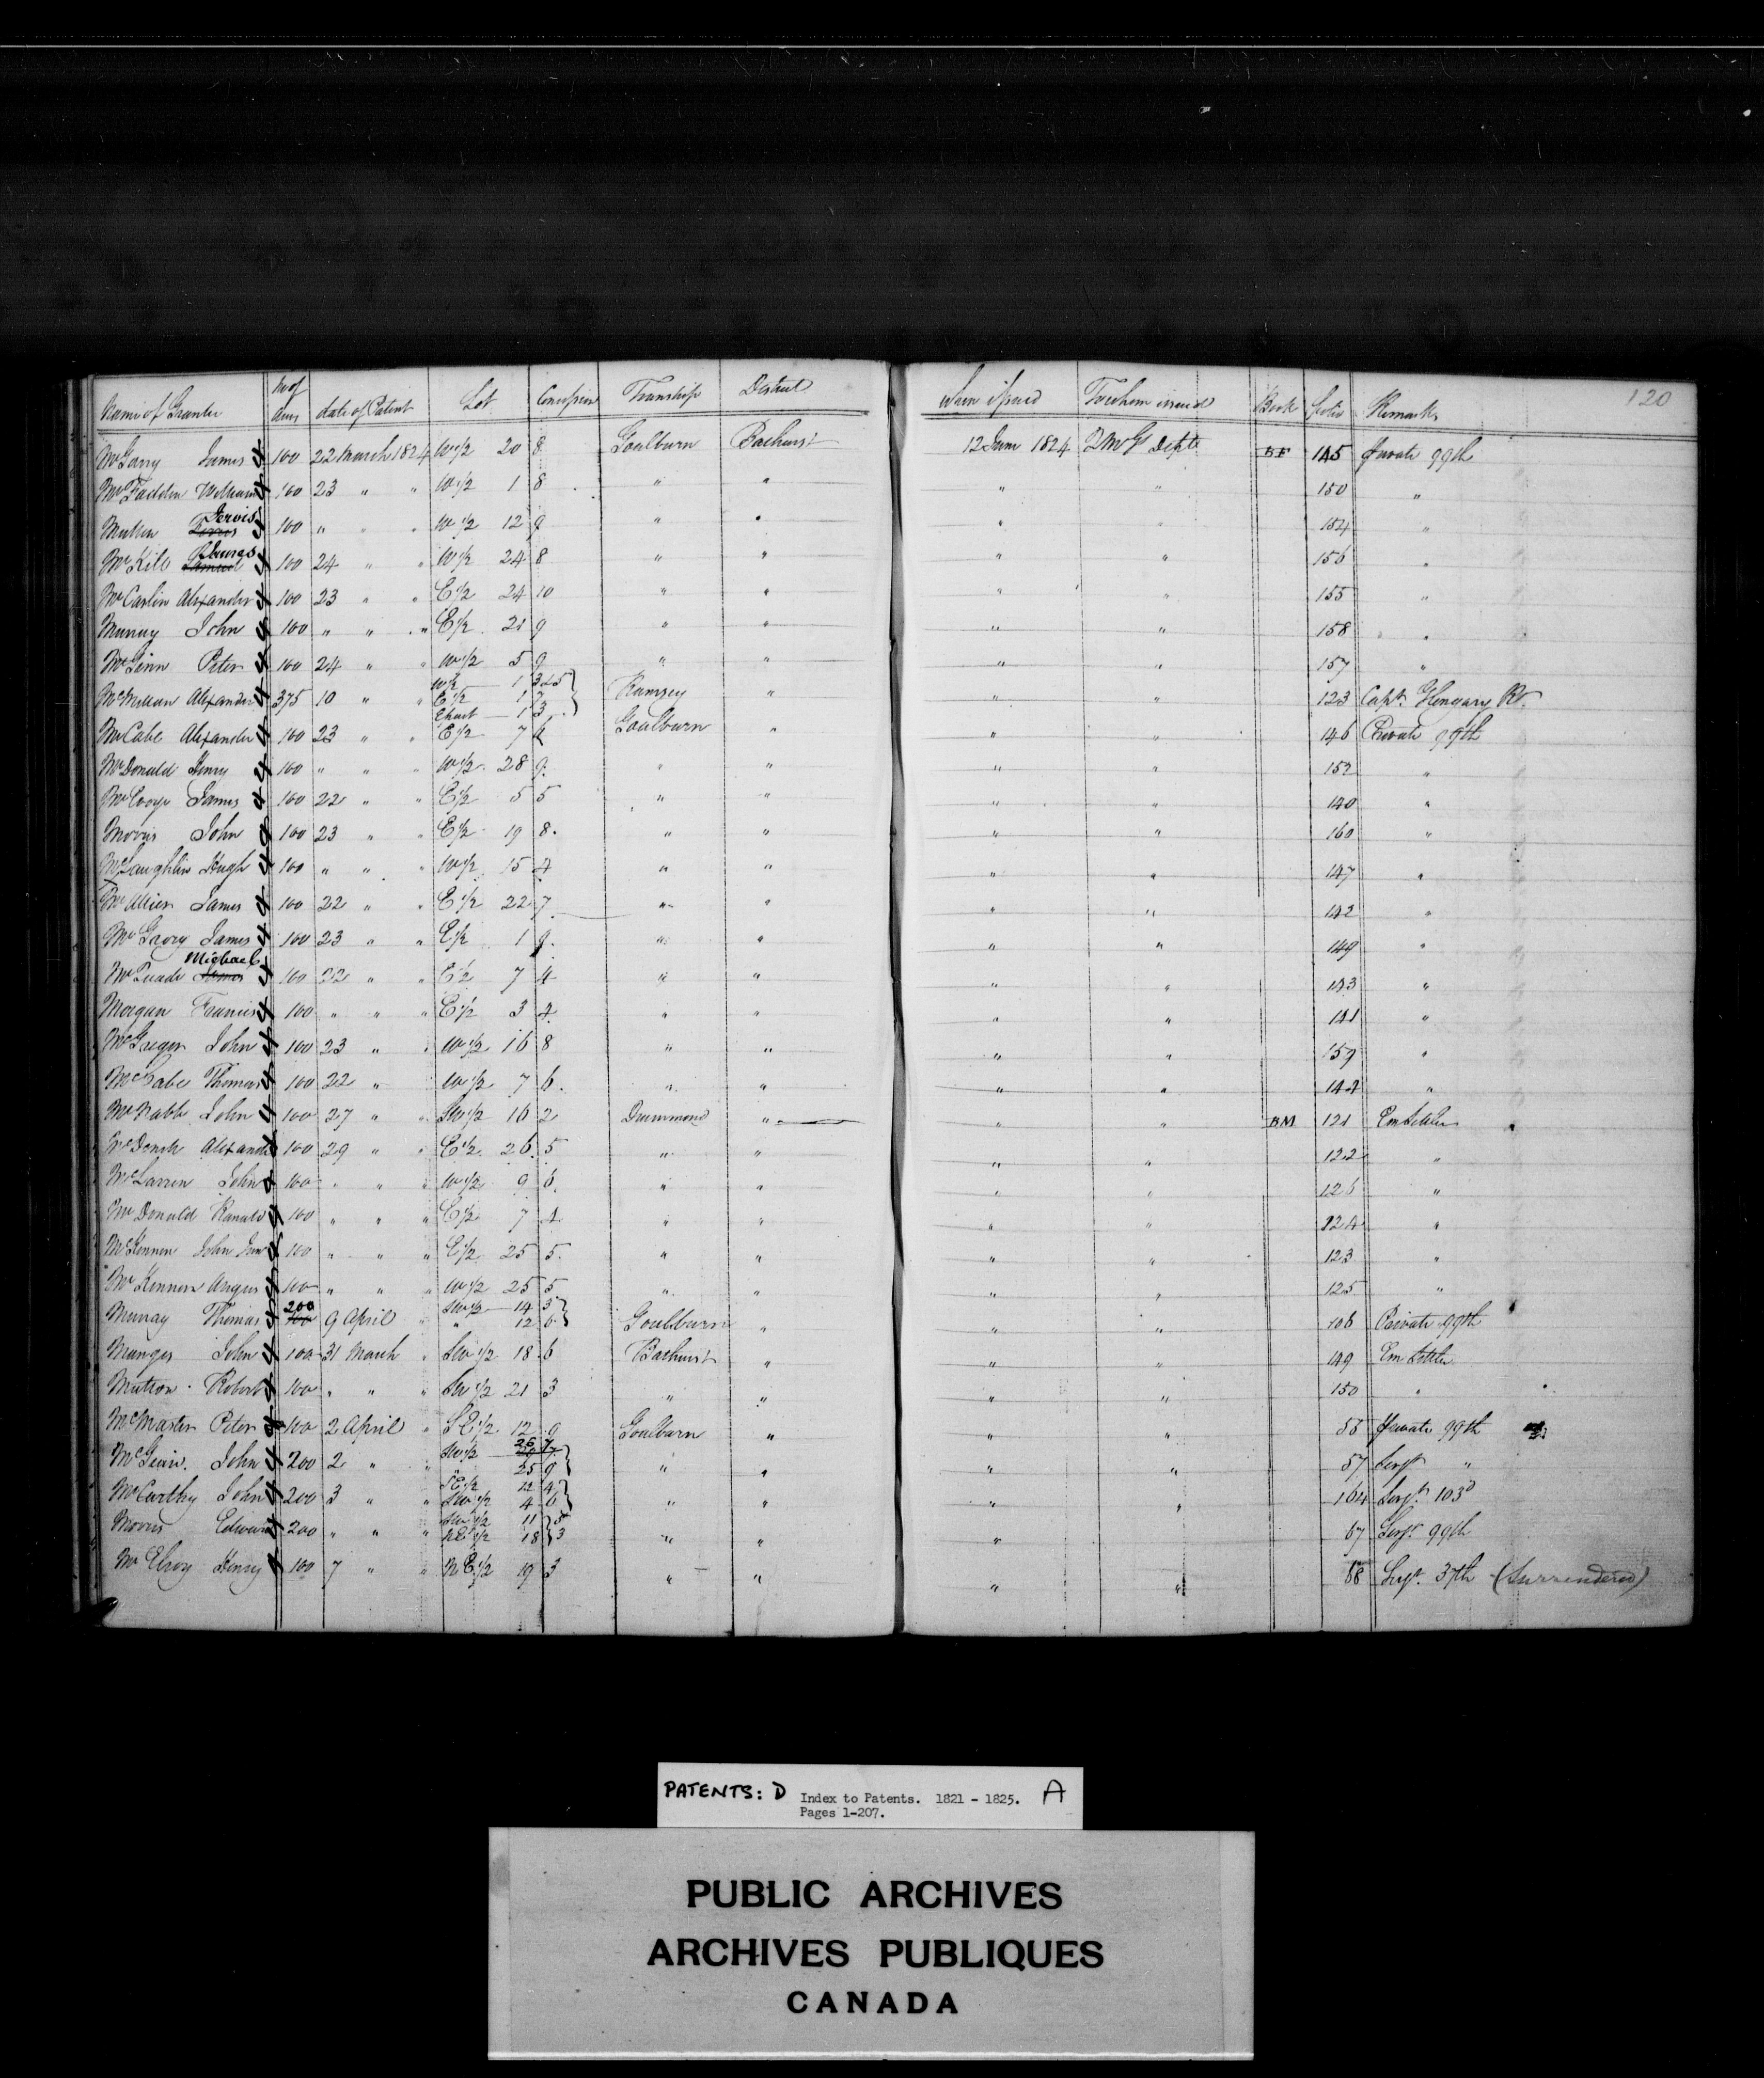 120
Name of Grantee No of Acres date of Patent Lot Concession Township District When issued To whom issued Book Folio Remarks
McGarry James 4 100 22 March 1824 W 1/2 20 8 Goulburn Bathurst 12 June 1824 2 M Gl Dept BF 145 private 99th
McFadden William 4 100 23 " " W 1/2 1 8 " " " " 150 "
Mullen Jervis 4 100 " " " W 1/2 12 9 " " " " 154 "
James 4 100 24 " " W 1/2 24 8 " " " " 156 "
McCarlin Alexander 4 100 23 " " E 1/2 24 10 " " " " 155 "
Murray John 4 100 " " " E 1/2 21 9 " " " " 158 "
McGinn Peter 4 100 24 " " W 1/2 5 9 " " " " 157 "
W 1/2 1 3 4 5
McMillan Alexander 4 375 10 " " E 1/2 1 7 Ramsey " " " 123 Capt. Glengary Rt.
E part 1 3
McCabe Alexander 4 100 23 " " E 1/2 7 6 Goulburn " " " 146 Private 99th
McDonald Henry 4 100 " " " W 1/2 28 9 " " " " 152 "
James 4 100 22 " " E 1/2 5 5 " " " " 140 "
Morris John 4 100 23 " " E 1/2 19 8 " " " " 160 "
McLaughlin Hugh 4 100 " " " W 1/2 15 4 " " " " 147 "
James 4 100 22 " " E 1/2 22 7 " " " " 142 "
James 4 100 23 " " E 1/2 1 9 " " " " 149 "
McQuade Michael 4 100 22 " " E 1/2 7 4 " " " " 143 "
Morgan Francis 4 100 " " " E 1/2 3 4 " " " " 141 "
McGregor John 4 100 23 " " W 1/2 16 8 " " " " 159 "
McCabe Thomas 4 100 22 " W 1/2 7 6 " " " " 144 "
McNabb John 4 100 27 " " SW 1/2 16 2 Drummond " " " BM 121 Em Settler
Alexander 4 100 29 " " E 1/2 26 5 " " " " 122 "
McLaren John 4 100 " " W 1/2 9 6 " " " " 126 "
McDonald Ranald 4 100 " " " E 1/2 7 4 " " " " 124 "
McKennon John Junr 4 100 " " " E 1/2 25 5 " " " " 123 "
McKennon Angus 4 100 " " " W 1/2 25 5 " " " " 125 "
Murray Thomas 4 200 100 9 April " SW 1/2 14 3 Goulburn " " " 106 Private 99th
" 12 6
Munger John 4 100 31 March " SW 1/2 18 6 Bathurst " " " 149 Em Settler
Robert 4 100 " " " SW 1/2 21 3 " " " " 150 "
McMaster Peter 4 100 2 April " SE 1/2 12 9 Goulburn " " " 55 private 99th
John 4 200 2 " " SW 1/2 26 7 " " " " 57 Sergt "
" 25 9
McCarthy John 4 200 3 " " SE 1/2 12 4 " " " " 164 Sergt. 103d
SW 1/2 4 6
Morris Edward 4 200 " " SW 1/2 11 3 " " " 67 Sergt 99th
NE 1/2 18 3
McElroy Henry 4 100 7 " " NE 1/2 19 3 " " " " 88 Sergt. 37th (Surrendered)
PATENTS: D Index to Patents. 1821 - 1825. A
Pages 1-207.
PUBLIC ARCHIVES
ARCHIVES PUBLIQUES
CANADA